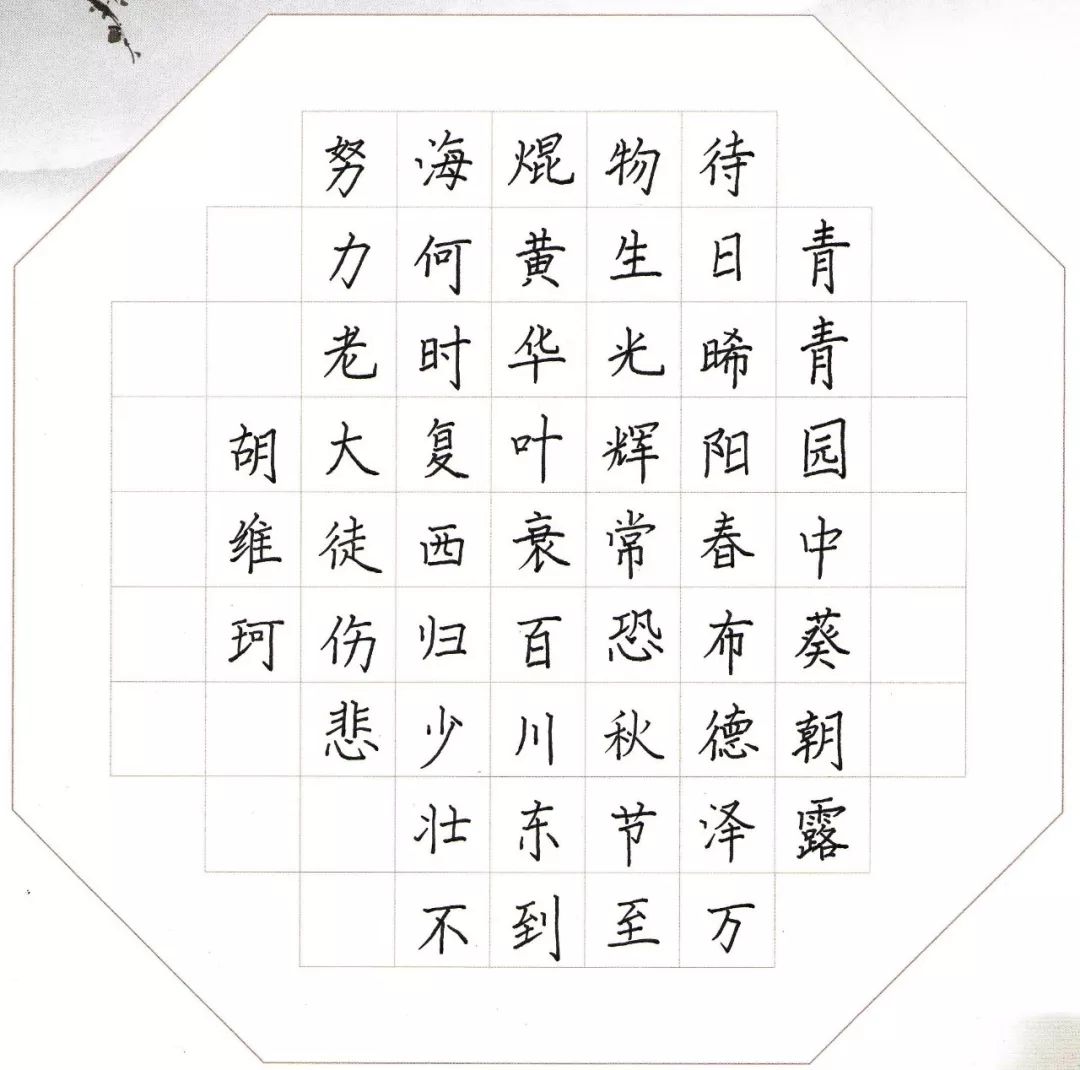 青青园中葵朝露
待日晞阳春布德泽万
物生光辉常恐秋节至
焜黄华叶衰百川东到
海何时复西归少壮不
努力老大徒伤悲
胡维珂